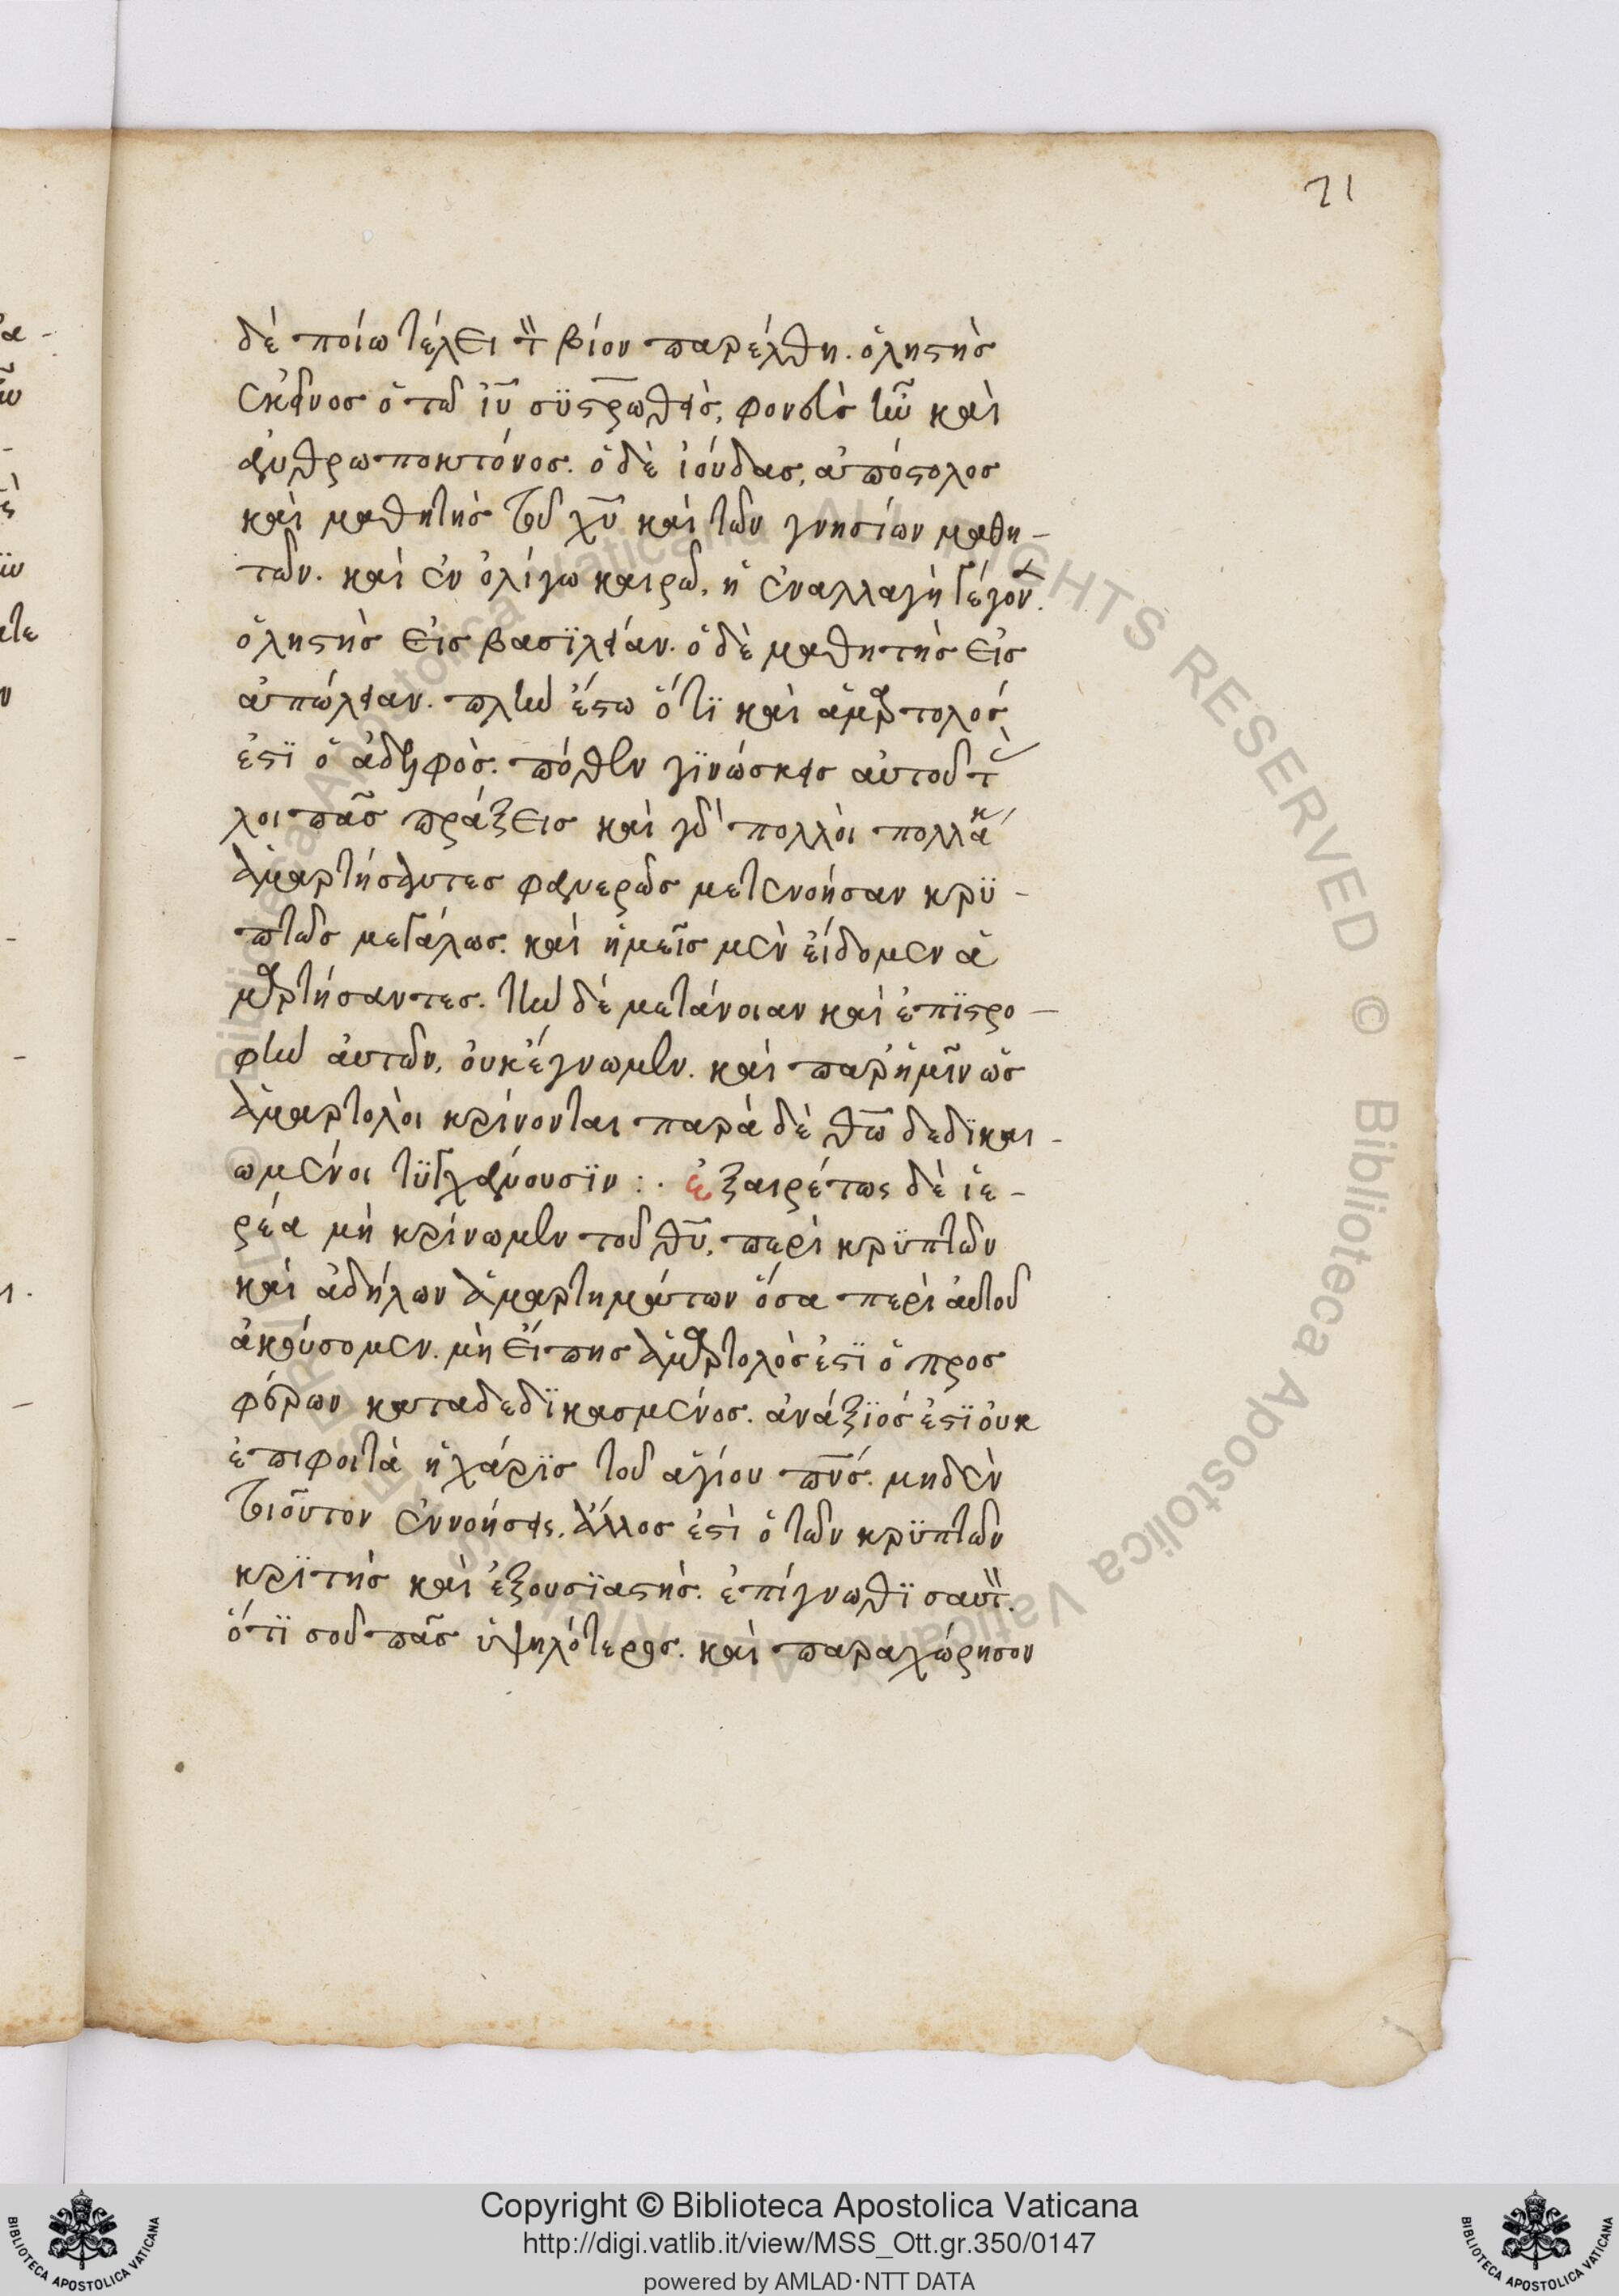 71
δὲ ποίω τέλει τὸν βίον παρέλθη. ὁ ληστὴς
ἐκεῖνος ὁ τῶ ἰῦ συστρωθεὶς, φονεὺς ἦν καὶ
ἀνθρωποκτόνος. ὁ δὲ ἰούδας, ἀπόστολος
καὶ μαθητὴς τοῦ χῦ καὶ τῶν γνησίων μαθη-
τῶν. καὶ ἐν ὀλίγω καιρῶ, ἡ ἐναλλαγὴ γέγον.
ὁ ληστὴς εἰς βασϊλείαν. ὁ δὲ μαθητὴς εἰς
ἀπώλειαν. πλὴν ἔστω ὅτϊ καὶ ἁμαρτολός
ἐστϊ ὁ ἀδελφὸς. πόθεν γϊνώσκεις αὐτοῦ τὰς
λοιπὰς πράξεις καὶ γὰρ πολλοὶ πολλάκις
ἁμαρτήσαντες φανερῶς μετενοήσαν κρϋ-
πτῶς μεγάλως. καὶ ἡμεῖς μὲν εἴδομεν ἁ
μαρτήσαντες. τὴν δὲ μετάνοιαν καὶ ἐπϊστρο-
φὴν αὐτῶν, οὐκ ἔγνωμεν. καὶ παρ ἡμῖν ὡς
ἁμαρτολὸι κρίνονται παρὰ δὲ θῶ δεδϊκαι-
ωμένοι τϋγχάνουσϊν :· ἐξαιρέτως δὲ ἱε-
ρέα μὴ κρίνωμεν τοῦ θῦ, περὶ κρϋπτῶν
καὶ ἀδήλων ἁμαρτημάτων ὅσα περὶ αὐτοῦ
ἀκούσομεν. μὴ εἴπης ἁμαρτολὸς ἐστϊ ὁ προσ
φέρων καταδεδϊκασμένος. ἀνάξϊός ἐστϊ οὐκ
ἐπιφοιτὰ ἡ χάρϊς τοῦ ἁγίου πνσ. μηδὲν
τοιοῦτον ἐννοήσεις. ἄλλος ἐστὶ ὁ τῶν κρϋπτῶν
κρϊτὴς καὶ ἐξουσϊαστὴς. ἐπίγνωθϊ σαυτὸν.
ὅτϊ σοῦ πᾶς ὑψηλότερος. καὶ παραχώρησον
Copyright © Biblioteca Apostolica Vaticana
http://digi.vatlib.it/view/MSS_Ott.gr.350/0147
powered by AMLAD·NTT DATA